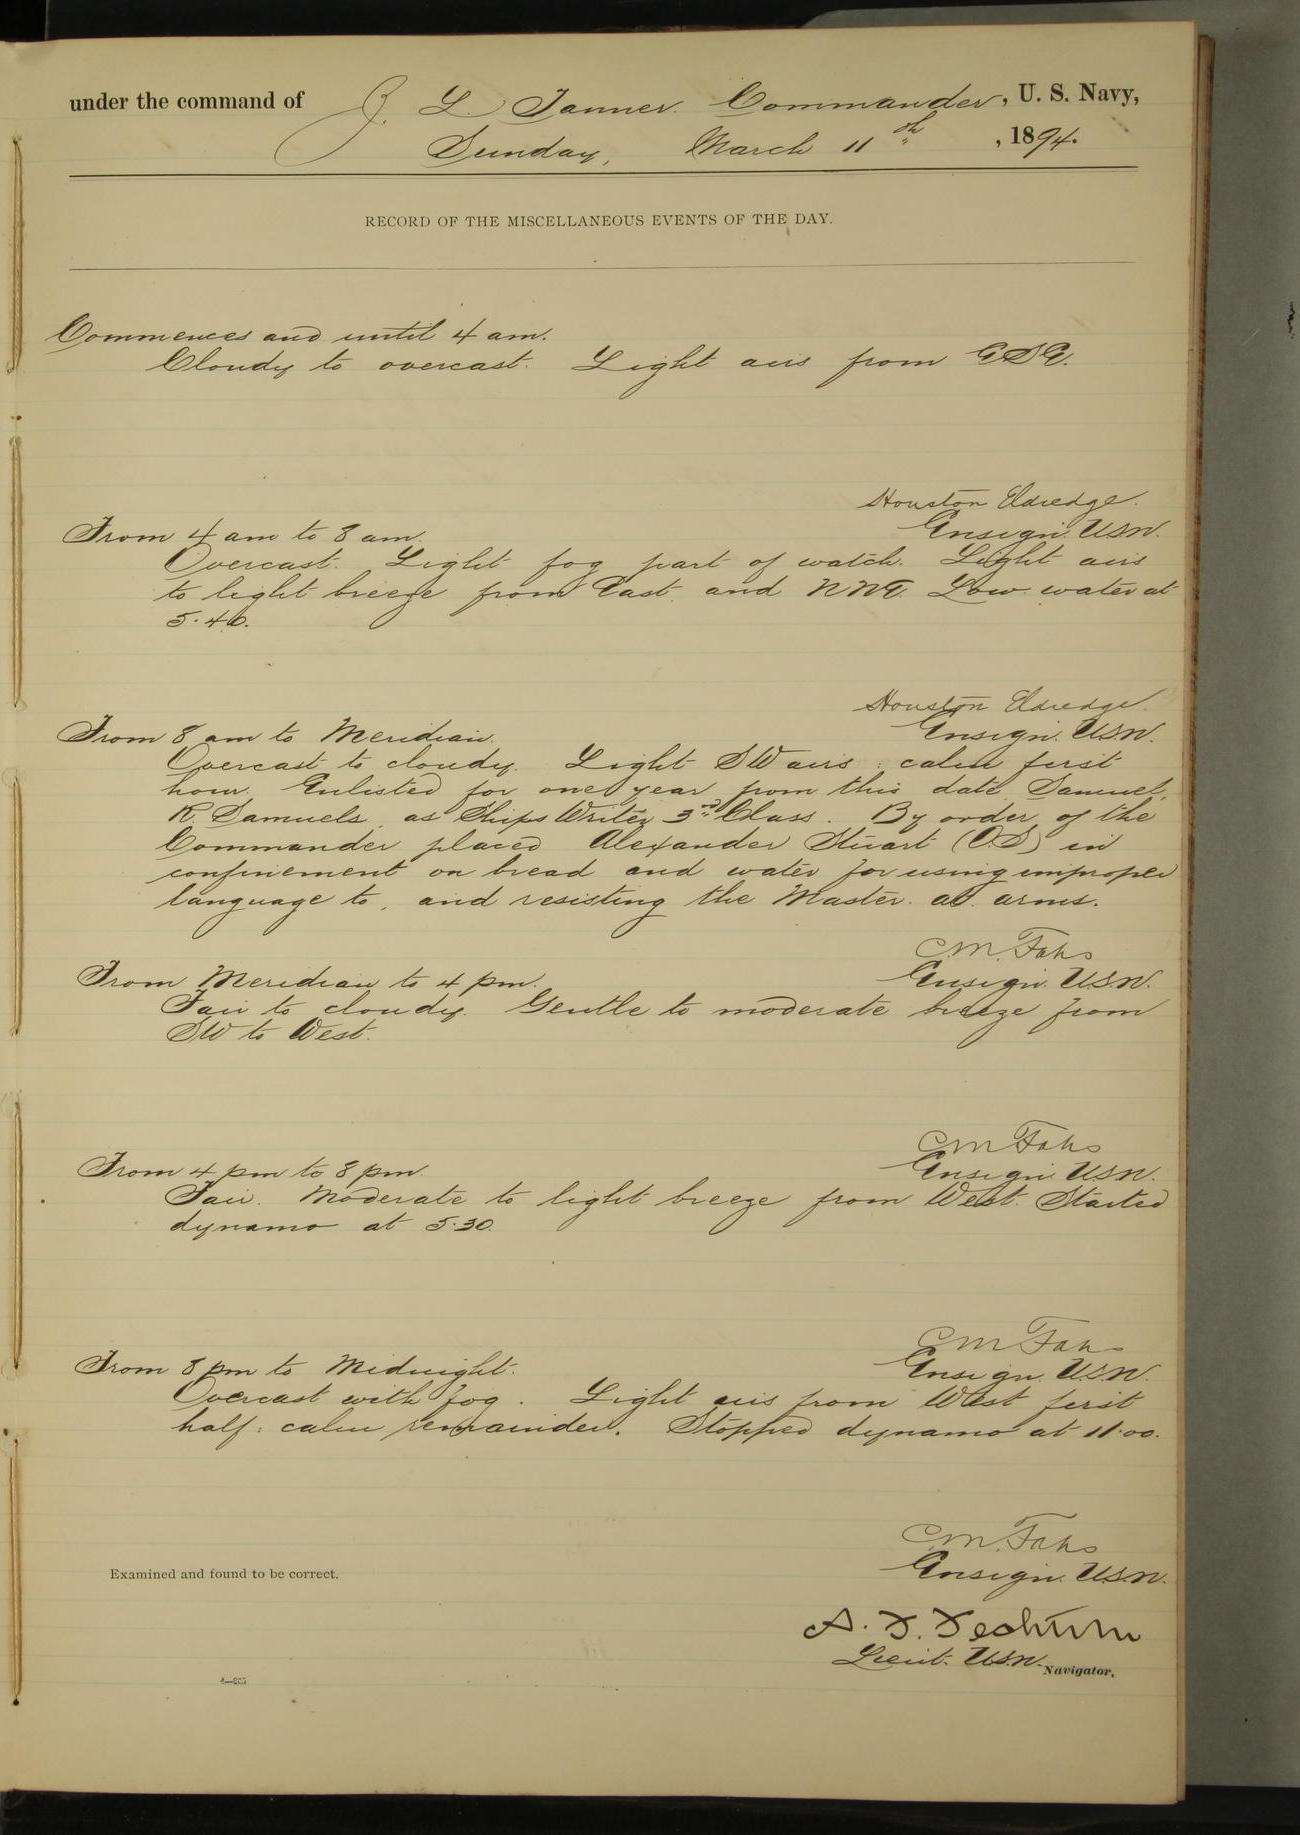 under the command of Z. L. Tanner. Commander, U. S. Navy,
Sunday, March 11th, 1894.
RECORD OF THE MISCELLANEOUS EVENTS OF THE DAY.
Commences and until 4 am.
Cloudy to overcast. Light airs from ESE.
Houston Eldredge.
Ensign. USN.
From 4 am to 8 am.
Overcast. Light fog part of watch. Light airs
to light breeze from East. and NNE. Low water at
5.40.
Houston Eldredge.
Ensign. USN.
From 8 am to Meridian.
Overcast to cloudy. Light SW airs: calm first
hour. Enlisted for one year from this date Samuel.
R. Samuels, as Ships Writer 3rd Class. By order of the
Commander placed Alexander Stuart (O.S) in
confinement on bread and water for using improper
language to, and resisting the Master. at. arms.
C.M. Fahs
Ensign. U.S.N.
From Meridian to 4 pm.
Fair to cloudy. Gentle to moderate breeze from
SW to West.
C M Fahs
Ensign USN.
From 4 pm to 8 pm.
Fair. Moderate to light breeze from West. Started
dynamo at 5.30.
C M Fahs
Ensign. USN.
From 8 pm to Midnight.
Overcast with fog. Light airs from West first
half: calm remainder. Stopped dynamo at 11.00.
C.M. Fahs
Ensign. U.S.N.
Examined and found to be correct.
A. F.
Lieut. USN. Navigator.